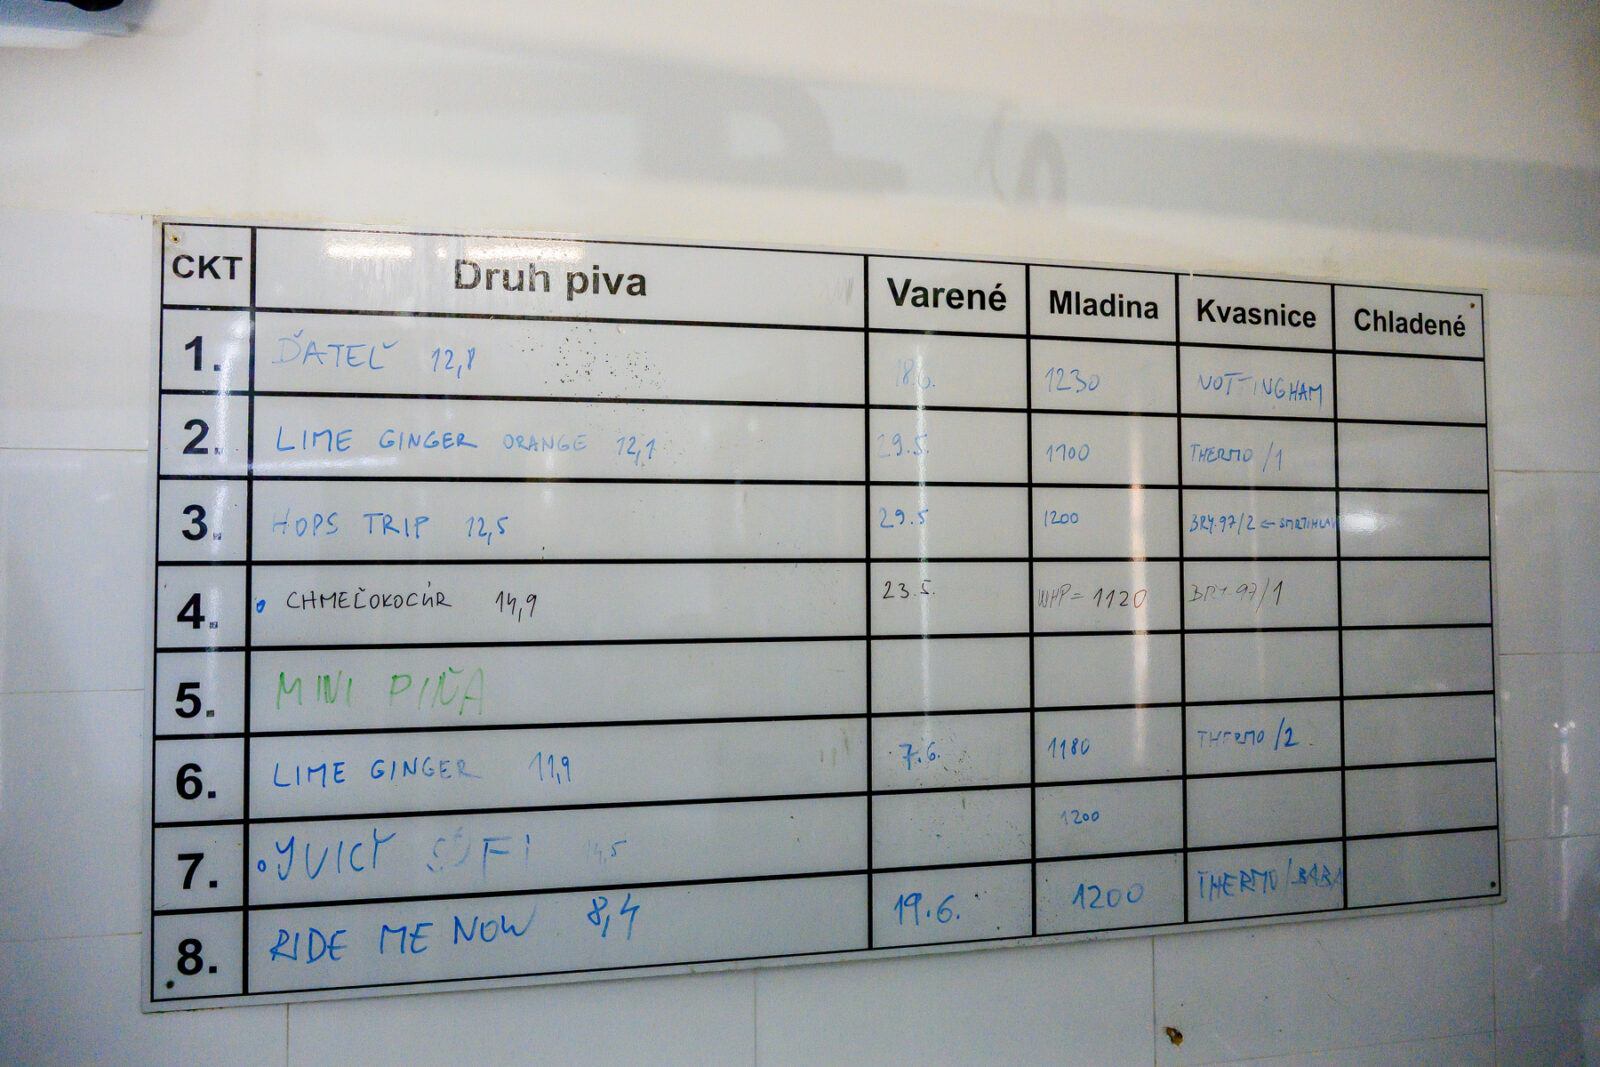 CKT Druh piva Varené Mladina Kvasnice Chladené
1. ĎATEĽ 12,8 18.6. 1230 NOTTINGHAM
2. LIME GINGER ORANGE 12,1 29.5. 1100 THERMO/1
3. HOPS TRIP 12,5 29.5 1200 BRY-97/2 ←
4. CHMEĽOKOCÚR 14,9 23.5. WHP= 1120 BRY-97/1
5. MINI PIŇA
6. LIME GINGER 11,9 7.6. 1180 THERMO/2
7. JUICY 1200
8. RIDE ME NOW 8,4 19.6. 1200 THERMO/BABA